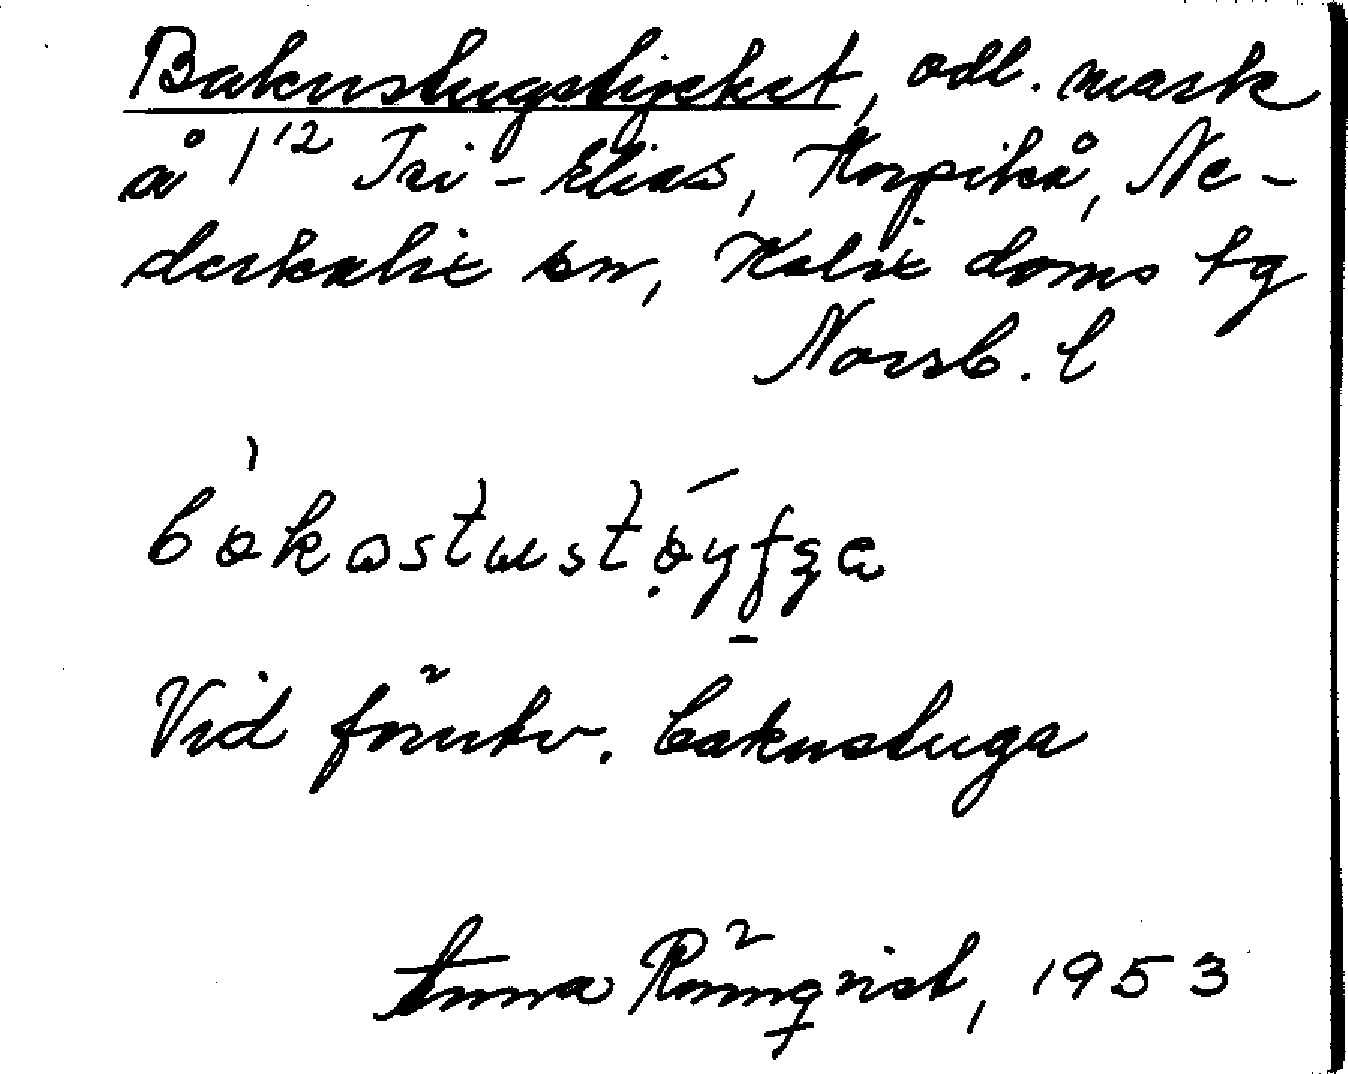 Bakustugstycket, odl. mark
å 1¹² Isi-Elias, Korpikå, Ne-
derkalix sn, Kalix doms tg
Norrb. l
bakastustøyfʒa
Vid förutv. bakustuga
Anna Rönnqvist, 1953